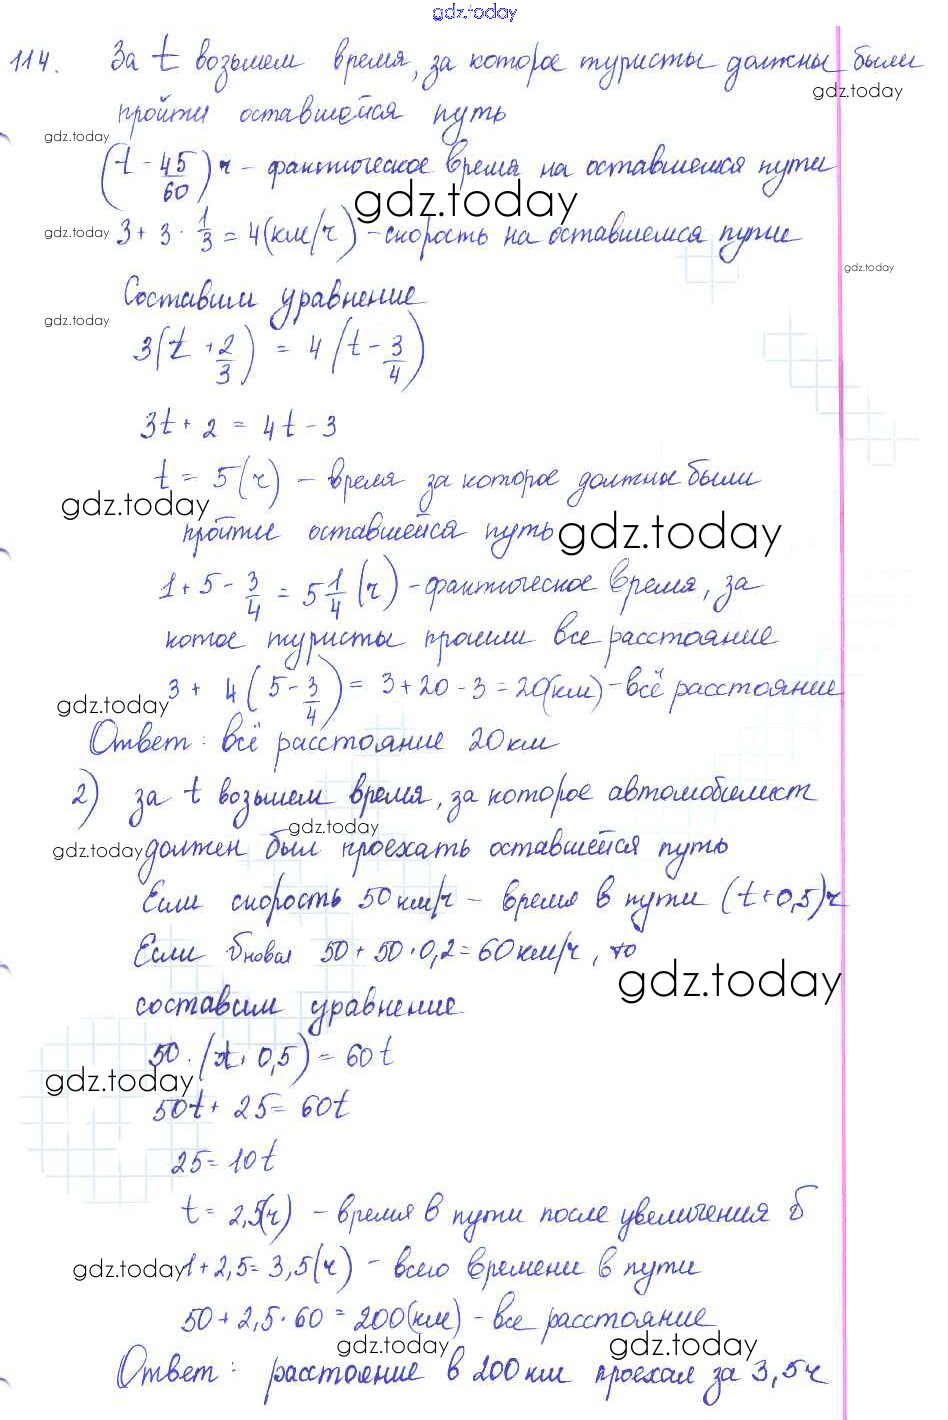 gdz.today
114. За t возьмем время, за которое туристы должны были
gdz.today
пройти оставшейся путь
gdz.today
(t - 45/60) ч - фактическое время на оставшемся пути
gdz.today
3 + 3 · 1/3 = 4 (км/ч) - скорость на оставшемся пути
gdz.today
gdz.today
Составим уравнение
gdz.today
3(t + 2/3) = 4(t - 3/4)
3t + 2 = 4t - 3
t = 5 (ч) - время за которое должны были
gdz.today
пройти оставшейся путь
gdz.today
1 + 5 - 3/4 = 5 1/4 (ч) - фактическое время, за
котое туристы прошли все расстояние
3 + 4(5 - 3/4) = 3 + 20 - 3 = 20(км) - всё расстояние
gdz.today
Ответ: всё расстояние 20 км
2) за t возьмем время, за которое автомобилист
gdz.today
gdz.today должен был проехать оставшейся путь
Если скорость 50 км/ч - время в пути (t + 0,5) ч
Если 50 + 50 · 0,2 = 60 км/ч, то
gdz.today
составим уравнение
50 · (t + 0,5) = 60t
gdz.today
50t + 25 = 60t
25 = 10t
t = 2,5(ч) - время в пути после увеличения
gdz.today 1 + 2,5 = 3,5 (ч) - всего времени в пути
50 + 2,5 · 60 = 200 (км) - все расстояние
gdz.today gdz.today
Ответ: расстояние в 200 км проехал за 3,5 ч